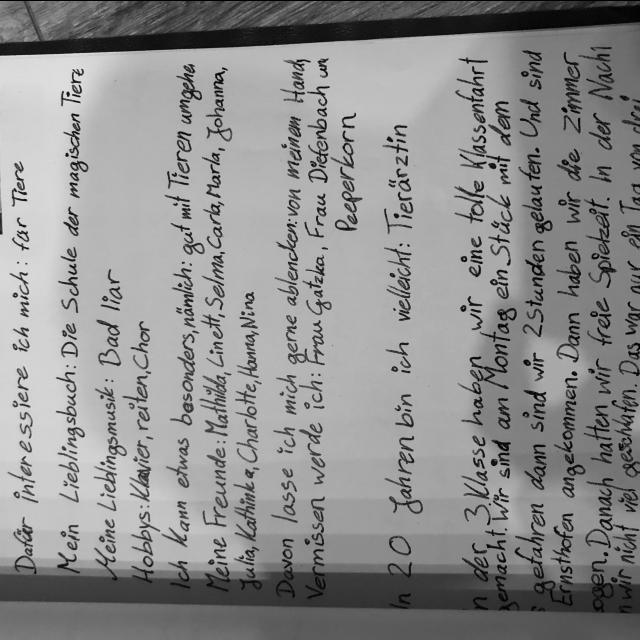 Dafür interessiere ich mich: für Tiere
Mein Lieblingsbuch: Die Schule der magischen Tiere
Meine Lieblingsmusik: Bad liar
Hobbys: Klavier, reiten, Chor
Ich kann etwas besonders, nämlich: gut mit Tieren umgehen
Meine Freunde: Mathilda, Linett, Selma, Carla, Marla, Johanna,
Julia, Kathinka, Charlotte, Hanna, Nina
Davon lasse ich mich gerne ablencken: von meinem Hand
Vermissen werde ich: Frau Gatzka, Frau Diefenbach un
Peeperkorn
In 20 Jahren bin ich vielleicht: Tierärztin
n der 3. Klasse haben wir eine tolle Klassenfahrt
emacht. Wir sind am Montag ein Stück mit dem
gefahren dann sind wir 2 Stunden gelaufen. Und sind
Ernsthofen angekommen. Dann haben wir die Zimmer
ogen. Danach hatten wir freie Spielzeit. In der Nacht
n wir nicht viel geschlafen. Das war nur ein Tag von drei